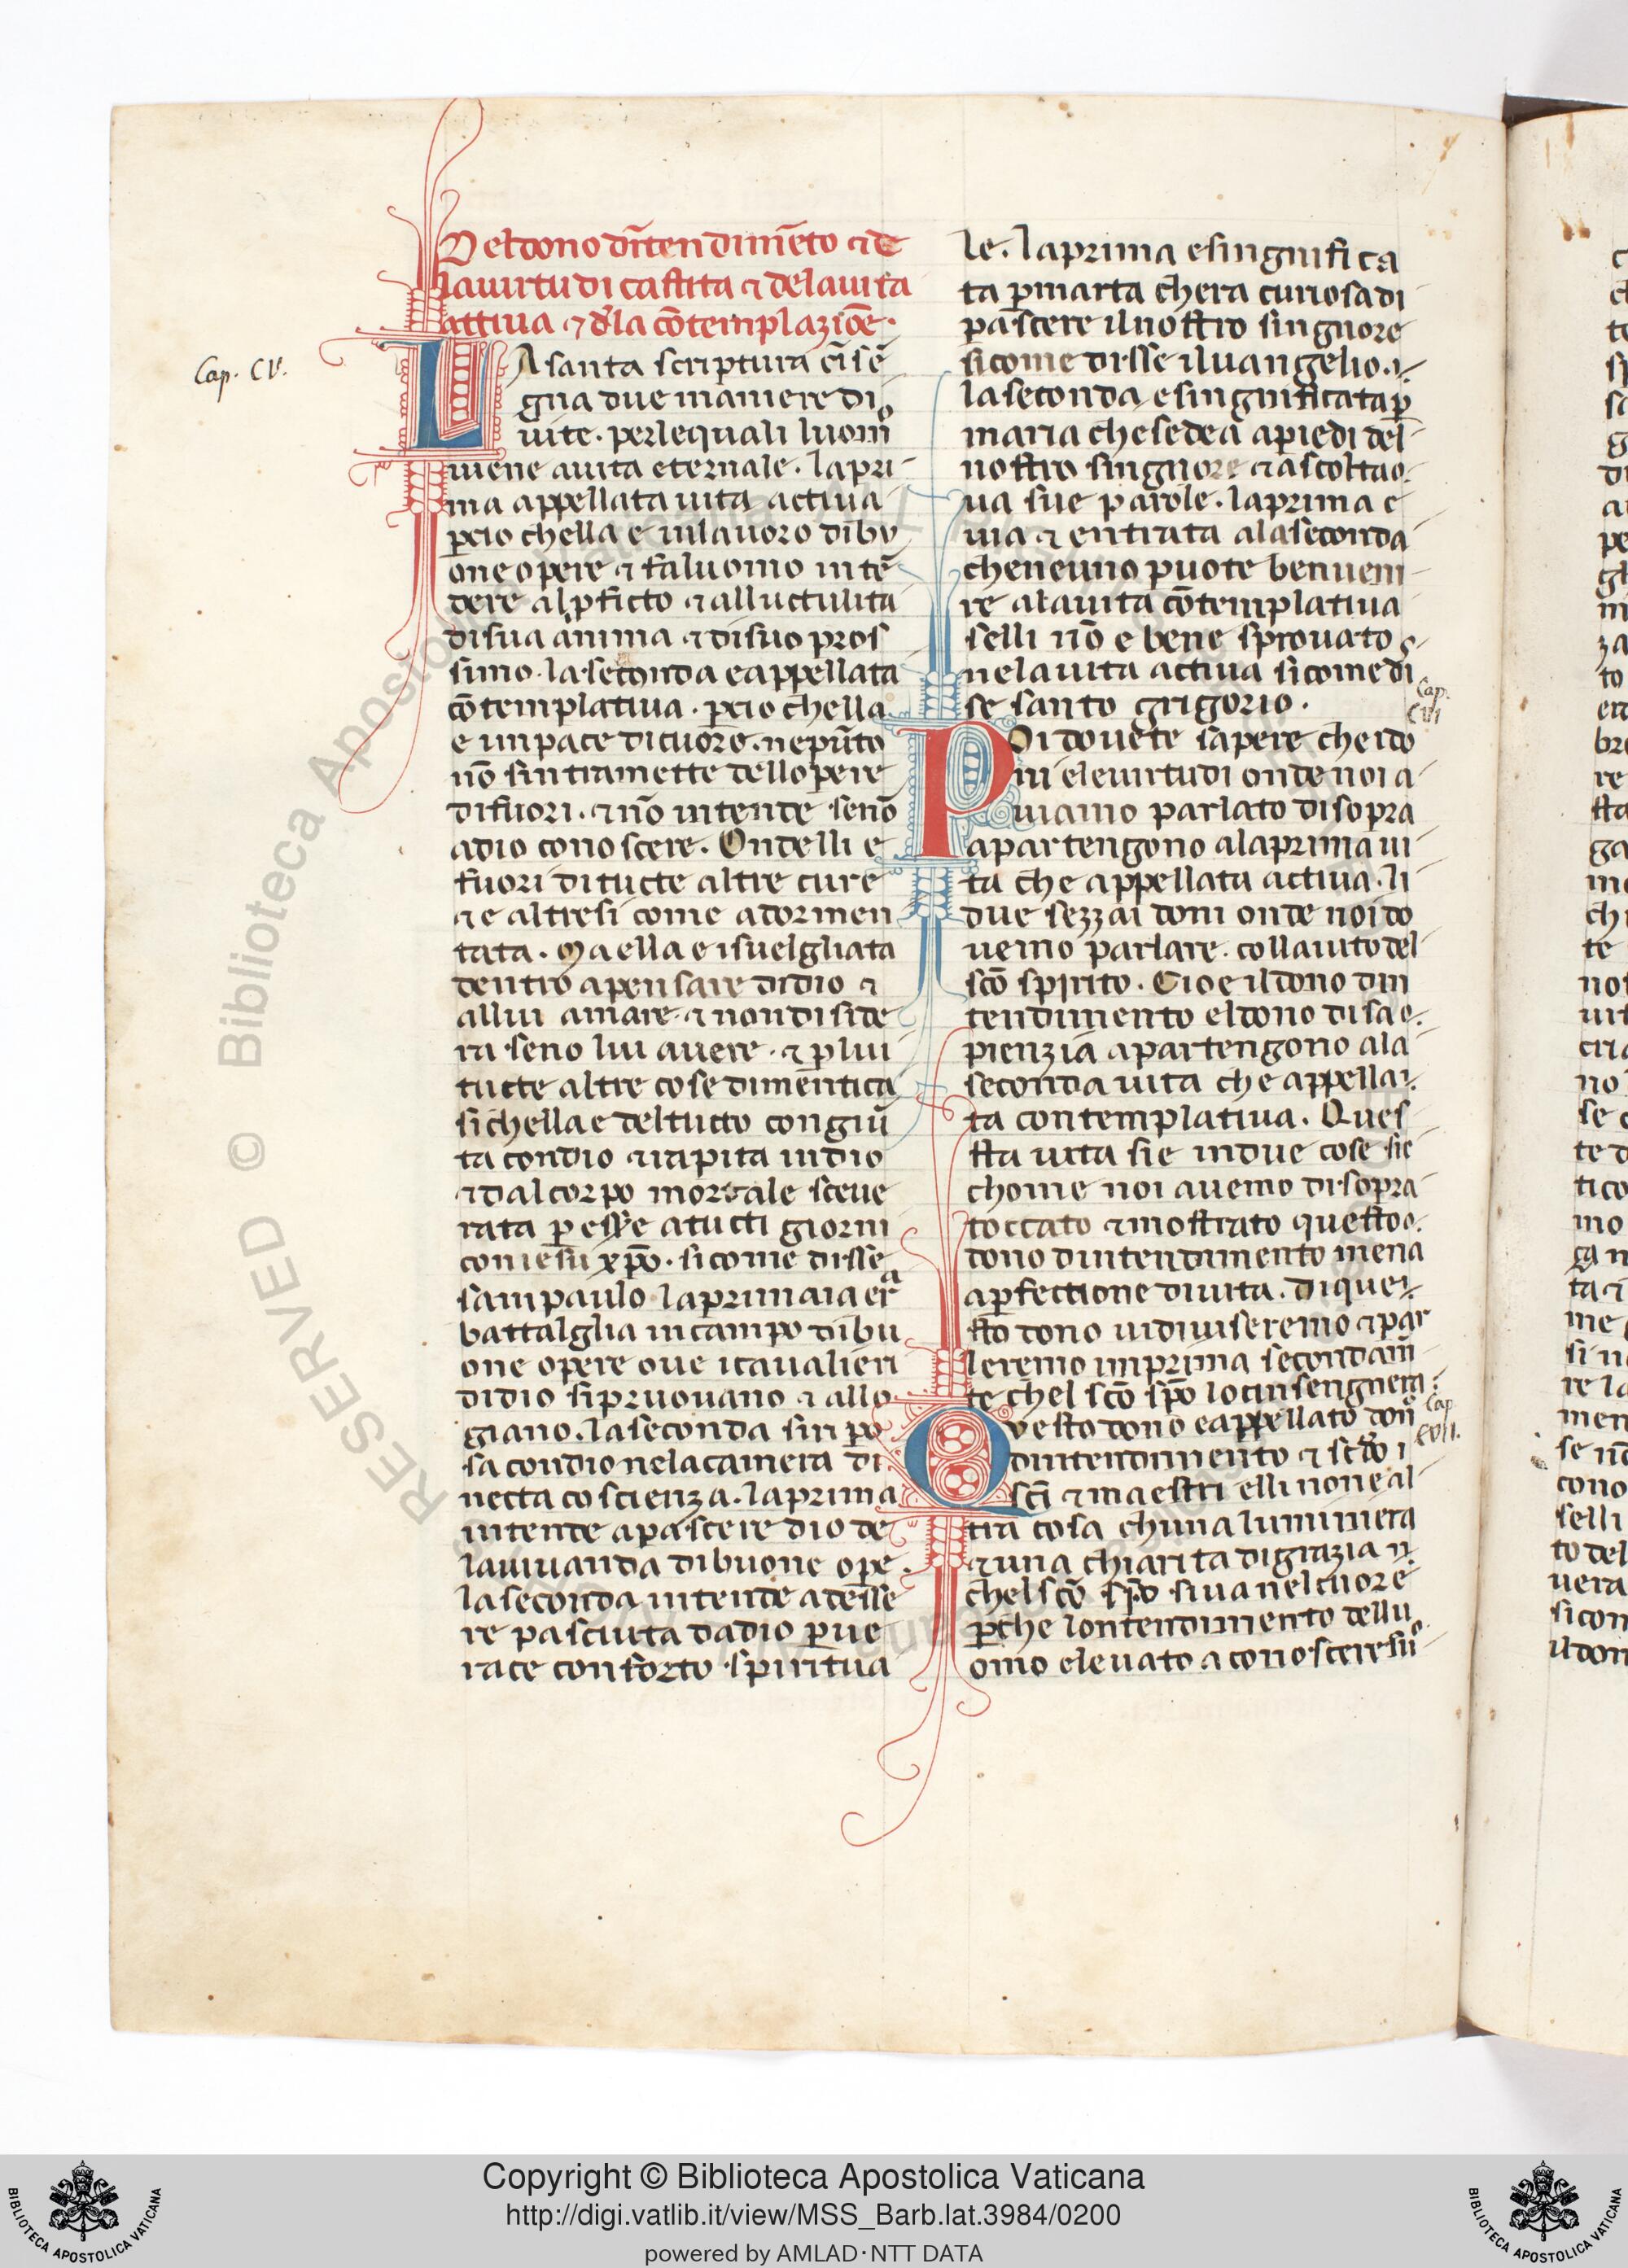 Del dono dītendimēto ⁊ de
la uirtu di castita ⁊ de la uita
attiua ⁊ d̄la cōtemplazioē·
Cap. CV.
LA santa scriptura cī sē
gna due maniere di
uite· per le quali luomo
uiene a uita eternale· la pri
ma appellata uita actiua
ꝑcio chella e in lauoro di bu
one opere ⁊ fa luomo intē
dere al ꝓficto ⁊ alluctulita
di sua anima ⁊ di suo pros
simo· la seconda e appellata
cōtemplatiua· ꝑcio chella
e im pace di cuore· ne pūto
nō sintramette dellopere
di fuori· ⁊ nō intende senō
a dio conoscere· Ondelli e
fuori di tucte altre cure
⁊ e altresi come adormen
tata· Ma ella e isuelgliata
dentro a pensare di dio ⁊
a llui amare· ⁊ non diside
ra seno lui auere· ⁊ ꝑ lui
tutte altre cose dimentica
si chella e del tutto congiū
ta con dio ⁊ rapita in dio
⁊ dal corpo mortale sceue
rata ꝑ ess̄e a tucti giorni
con iesu xp̄o· si come disse
sam paulo la prima ia era
battalglia in campo di bu
one opere oue i caualieri
di dio si pruouano ⁊ allo
giano· la seconda si ripo
sa con dio ne la camera di
necta coscienza· la prima
intende a pascere dio de
la uiuanda di buone opē·
la seconda intende ad esse
re pasciuta da dio ꝑ ue
race conforto spiritua
le· la prima e singnifica
ta ꝑ marta chera curiosa di
pascere il nostro singnore
si come disse il uangelio·
la seconda e singnificata ꝑ
maria che sedea a piedi del
nostro singnore ⁊ ascoltao
ua sue parole· la prima e
uia ⁊ entrata a la seconda
che neuno puote ben ueni
re a la uita cōtemplatiua
selli nō e bene sprouato
ne la uita actiua si come di
se santo grigorio·
Cap.
CVI
POi douete sapere che i do
ni e le uirtudi onde noi a
uiamo parlato di sopra
apartengono a la prima ui
ta che appellata actiua· li
due sezzai doni onde noi do
uemo parlare· collaiuto del
scō spirito· Cio e il dono din
tendimento el dono di sa
pienzia apartengono a la
seconda uita che appella
ta contemplatiua· Ques
sta uita sie in due cose sie
chome noi auemo di sopra
toccato ⁊ mostrato questo
dono dintendimento mena
a ꝑfectione di uita· Di que
sto dono ui diuiseremo ⁊ par
leremo im prima secondam̄
te chel scō sp̄o lo cinsengnera·
Cap
CVII.
Questo dono e appellato dono
dintendimento ⁊ secōdo i
sc̄i ⁊ maestri elli none al
tra cosa chuna luminiera
⁊ una chiarita di grazia
chel scō sp̄o si ua nel cuore
ꝑche lontendimento dellu
omo eleuato a conoscere suo
Copyright © Biblioteca Apostolica Vaticana
http://digi.vatlib.it/view/MSS_Barb.lat.3984/0200
powered by AMLAD·NTT DATA
BIBLIOTECA APOSTOLICA VATICANA
BIBLIOTECA APOSTOLICA VATICANA